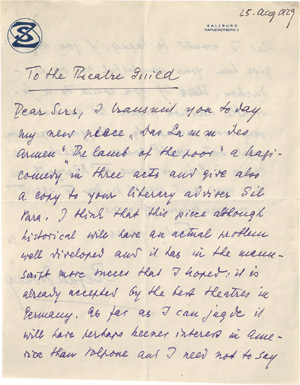 25. Aug 1929
SZ
SALZBURG
KAPUZINERBERG 5
To the Theatre Guild
Dear Sirs, I transmit you to day
my new piece „Das Lamm des
Armen" „The lamb of the poor" a tragi-
comedy in three acts and give also
a copy to your literary adviser Sil
Vara. I think that this piece although
historical will have an actual problem
well developed and it has in the manu-
script more succes that I hoped; it is
already accepted by the best theatres in
Germany. As far as I can jugde it
will have perhaps keener interest in Ame-
rica than Volpone and I need not to say